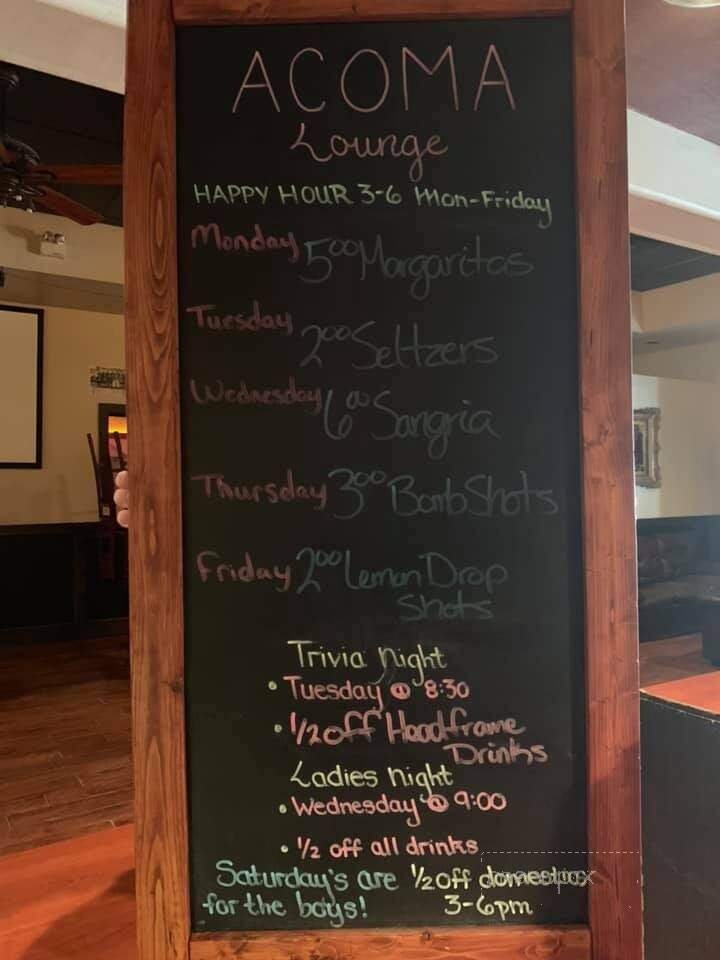 ACOMA
Lounge
HAPPY HOUR 3-6 Mon-Friday
Monday 5⁰⁰ Margaritas
Tuesday 2⁰⁰ Seltzers
Wednesday 6⁰⁰ Sangria
Thursday 3⁰⁰ Bomb Shots
Friday 2⁰⁰ Lemon Drop
Shots
Trivia night
• Tuesday @ 8:30
• 1/2 off Headframe
Drinks
Ladies night
• Wednesday @ 9:00
• 1/2 off all drinks
Saturday's are 1/2 off
for the boys! 3-6pm